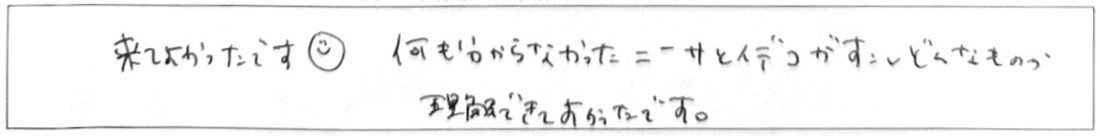 来てよかったです☺ 何も分からなかったニーサとイデコがすこしどんなものか
理解できてよかったです。